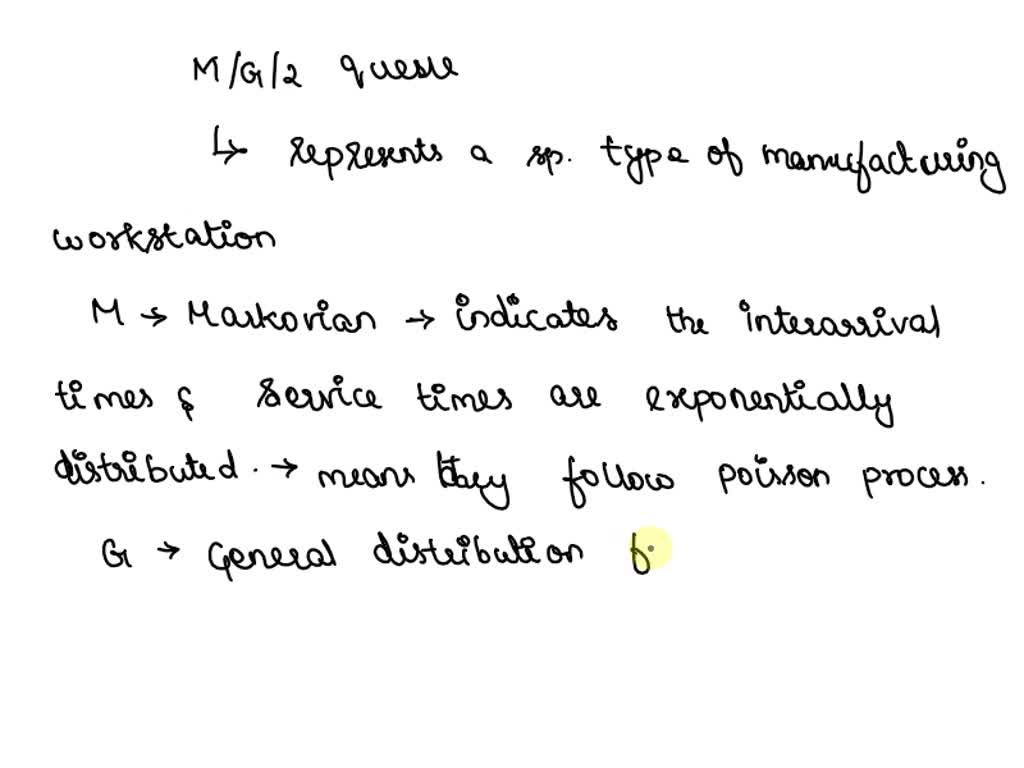 M/G/2 queue
↳ represents a sp. type of manufacturing
workstation
M → Markovian → indicates the interarrival
times & service times are exponentially
distributed. → means they follow poisson process.
G → General distribution f